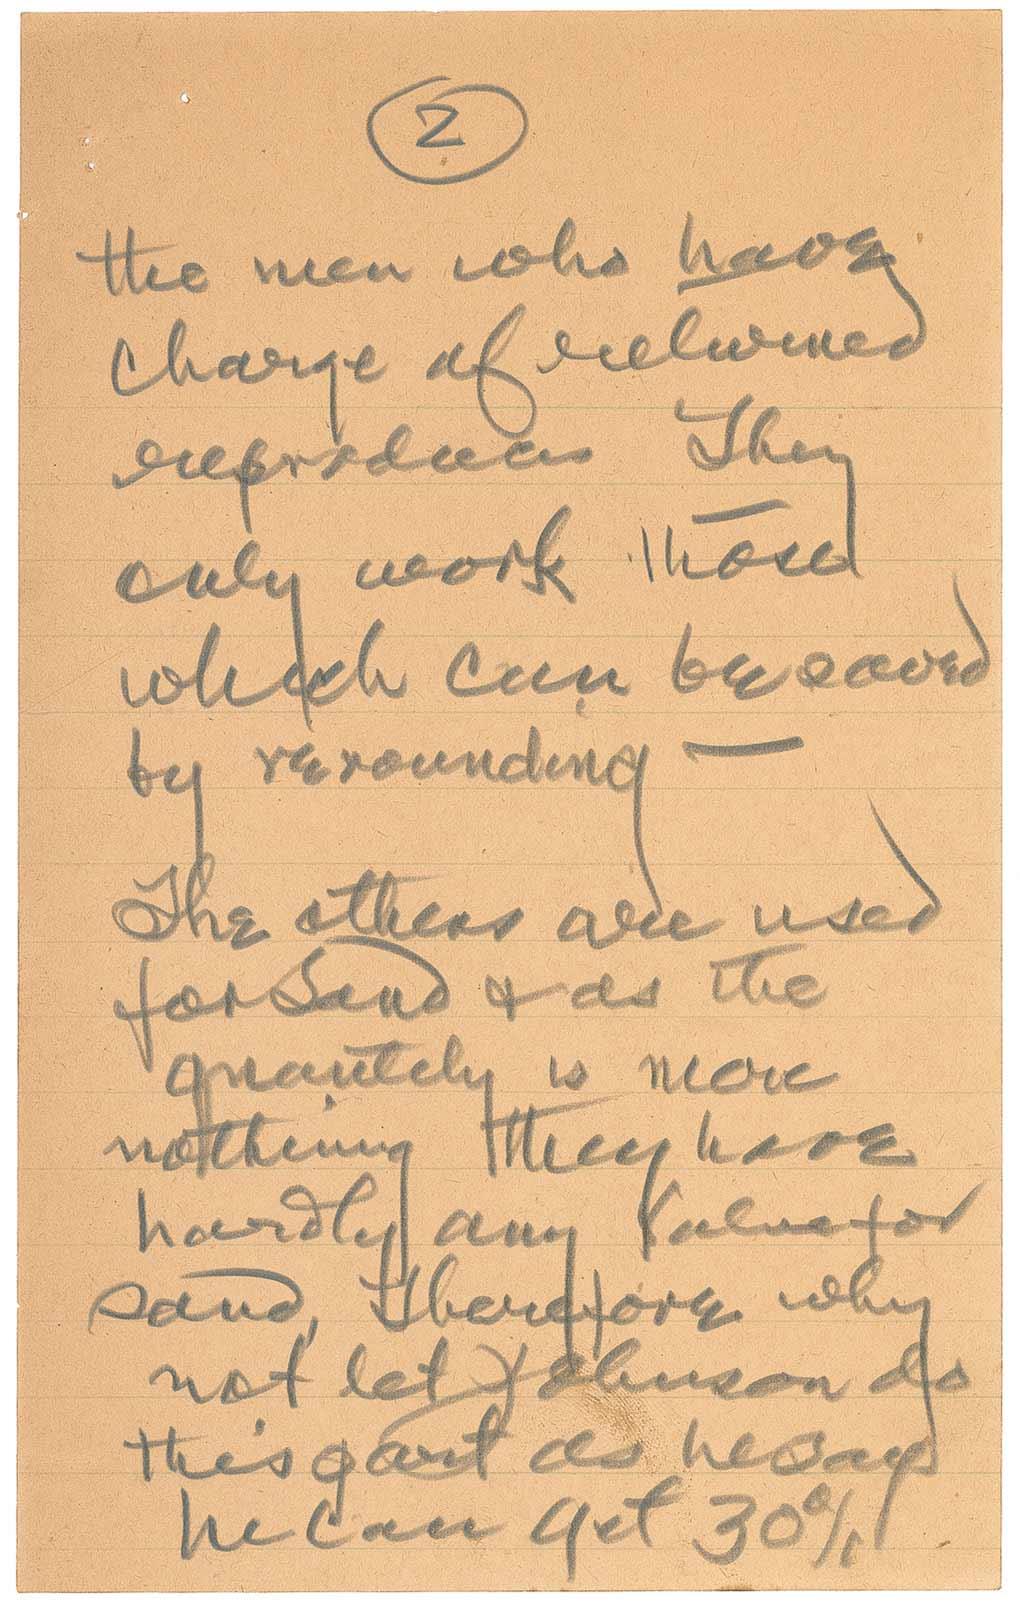 2
the men who have
charge of returned
reproducers They
only work those
which can be saved
by rerounding —
The others are used
for Sand & as the
quantity is more
nothing they have
hardly any Value for
sand, Therefore why
not let Johnson do
this part as he says
he can get 30%